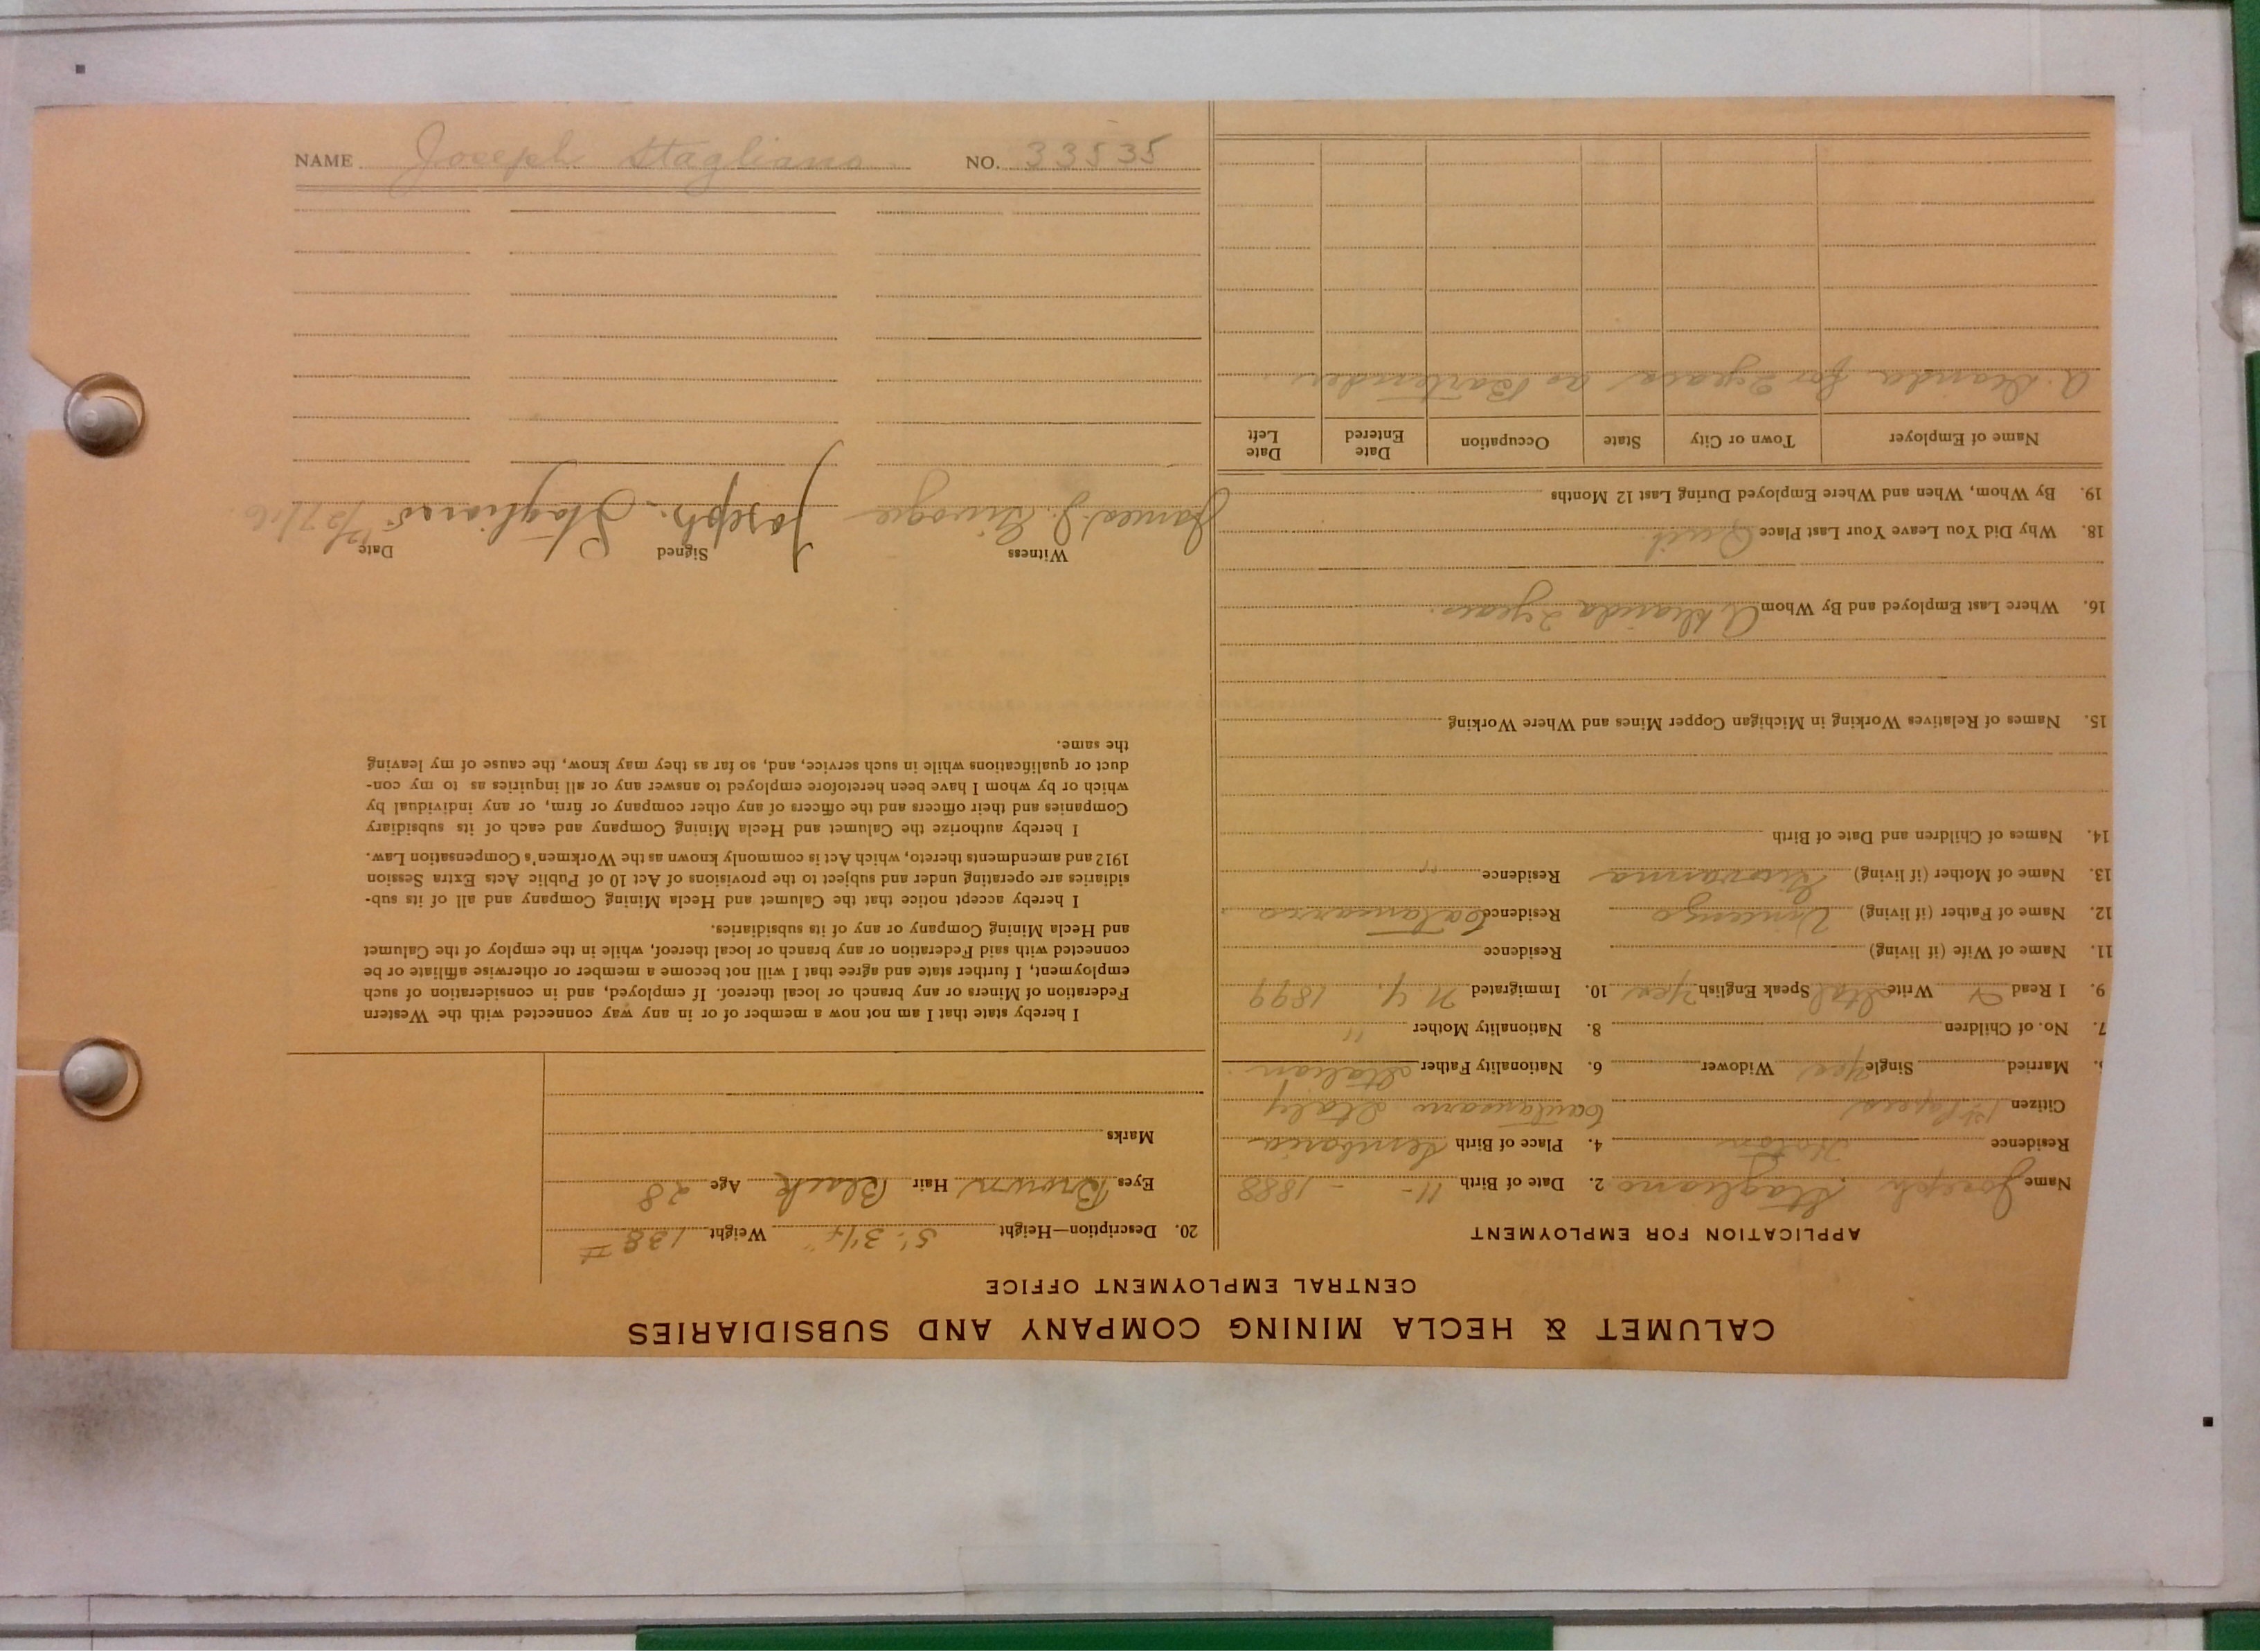 NAME Joseph Stagliano NO. 33535
CALUMET & HECLA MINING COMPANY AND SUBSIDIARIES
CENTRAL EMPLOYMENT OFFICE
APPLICATION FOR EMPLOYMENT
Name Joseph Stagliano 2. Date of Birth 11 - - 1888
Residence 4. Place of Birth
Citizen 1st Papers Italy
Married Single Yes Widower 6. Nationality Father Italian
7. No. of Children 8. Nationality Mother "
9. I Read Write Ital Speak English Yes 10. Immigrated N.Y. 1899
11. Name of Wife (if living) Residence
12. Name of Father (if living) Vincenzo Residence
13. Name of Mother (if living) Giovanna Residence "
14. Names of Children and Date of Birth
15. Names of Relatives Working in Michigan Copper Mines and Where Working
16. Where Last Employed and By Whom 2 years.
18. Why Did You Leave Your Last Place Quit.
19. By Whom, When and Where Employed During Last 12 Months
Name of Employer Town or City State Occupation Date Entered Date Left
for 2 years as Bartender.
20. Description—Height 5' 3 1/4" Weight 138 #
Eyes Brown Hair Black Age 28
Marks
I hereby state that I am not now a member of or in any way connected with the Western
Federation of Miners or any branch or local thereof. If employed, and in consideration of such
employment, I further state and agree that I will not become a member or otherwise affiliate or be
connected with said Federation or any branch or local thereof, while in the employ of the Calumet
and Hecla Mining Company or any of its subsidiaries.
I hereby accept notice that the Calumet and Hecla Mining Company and all of its sub-
sidiaries are operating under and subject to the provisions of Act 10 of Public Acts Extra Session
1912 and amendments thereto, which Act is commonly known as the Workmen's Compensation Law.
I hereby authorize the Calumet and Hecla Mining Company and each of its subsidiary
Companies and their officers and the officers of any other company or firm, or any individual by
which or by whom I have been heretofore employed to answer any or all inquiries as to my con-
duct or qualifications while in such service, and, so far as they may know, the cause of my leaving
the same.
Witness Signed Date
James J. Joseph Stagliano